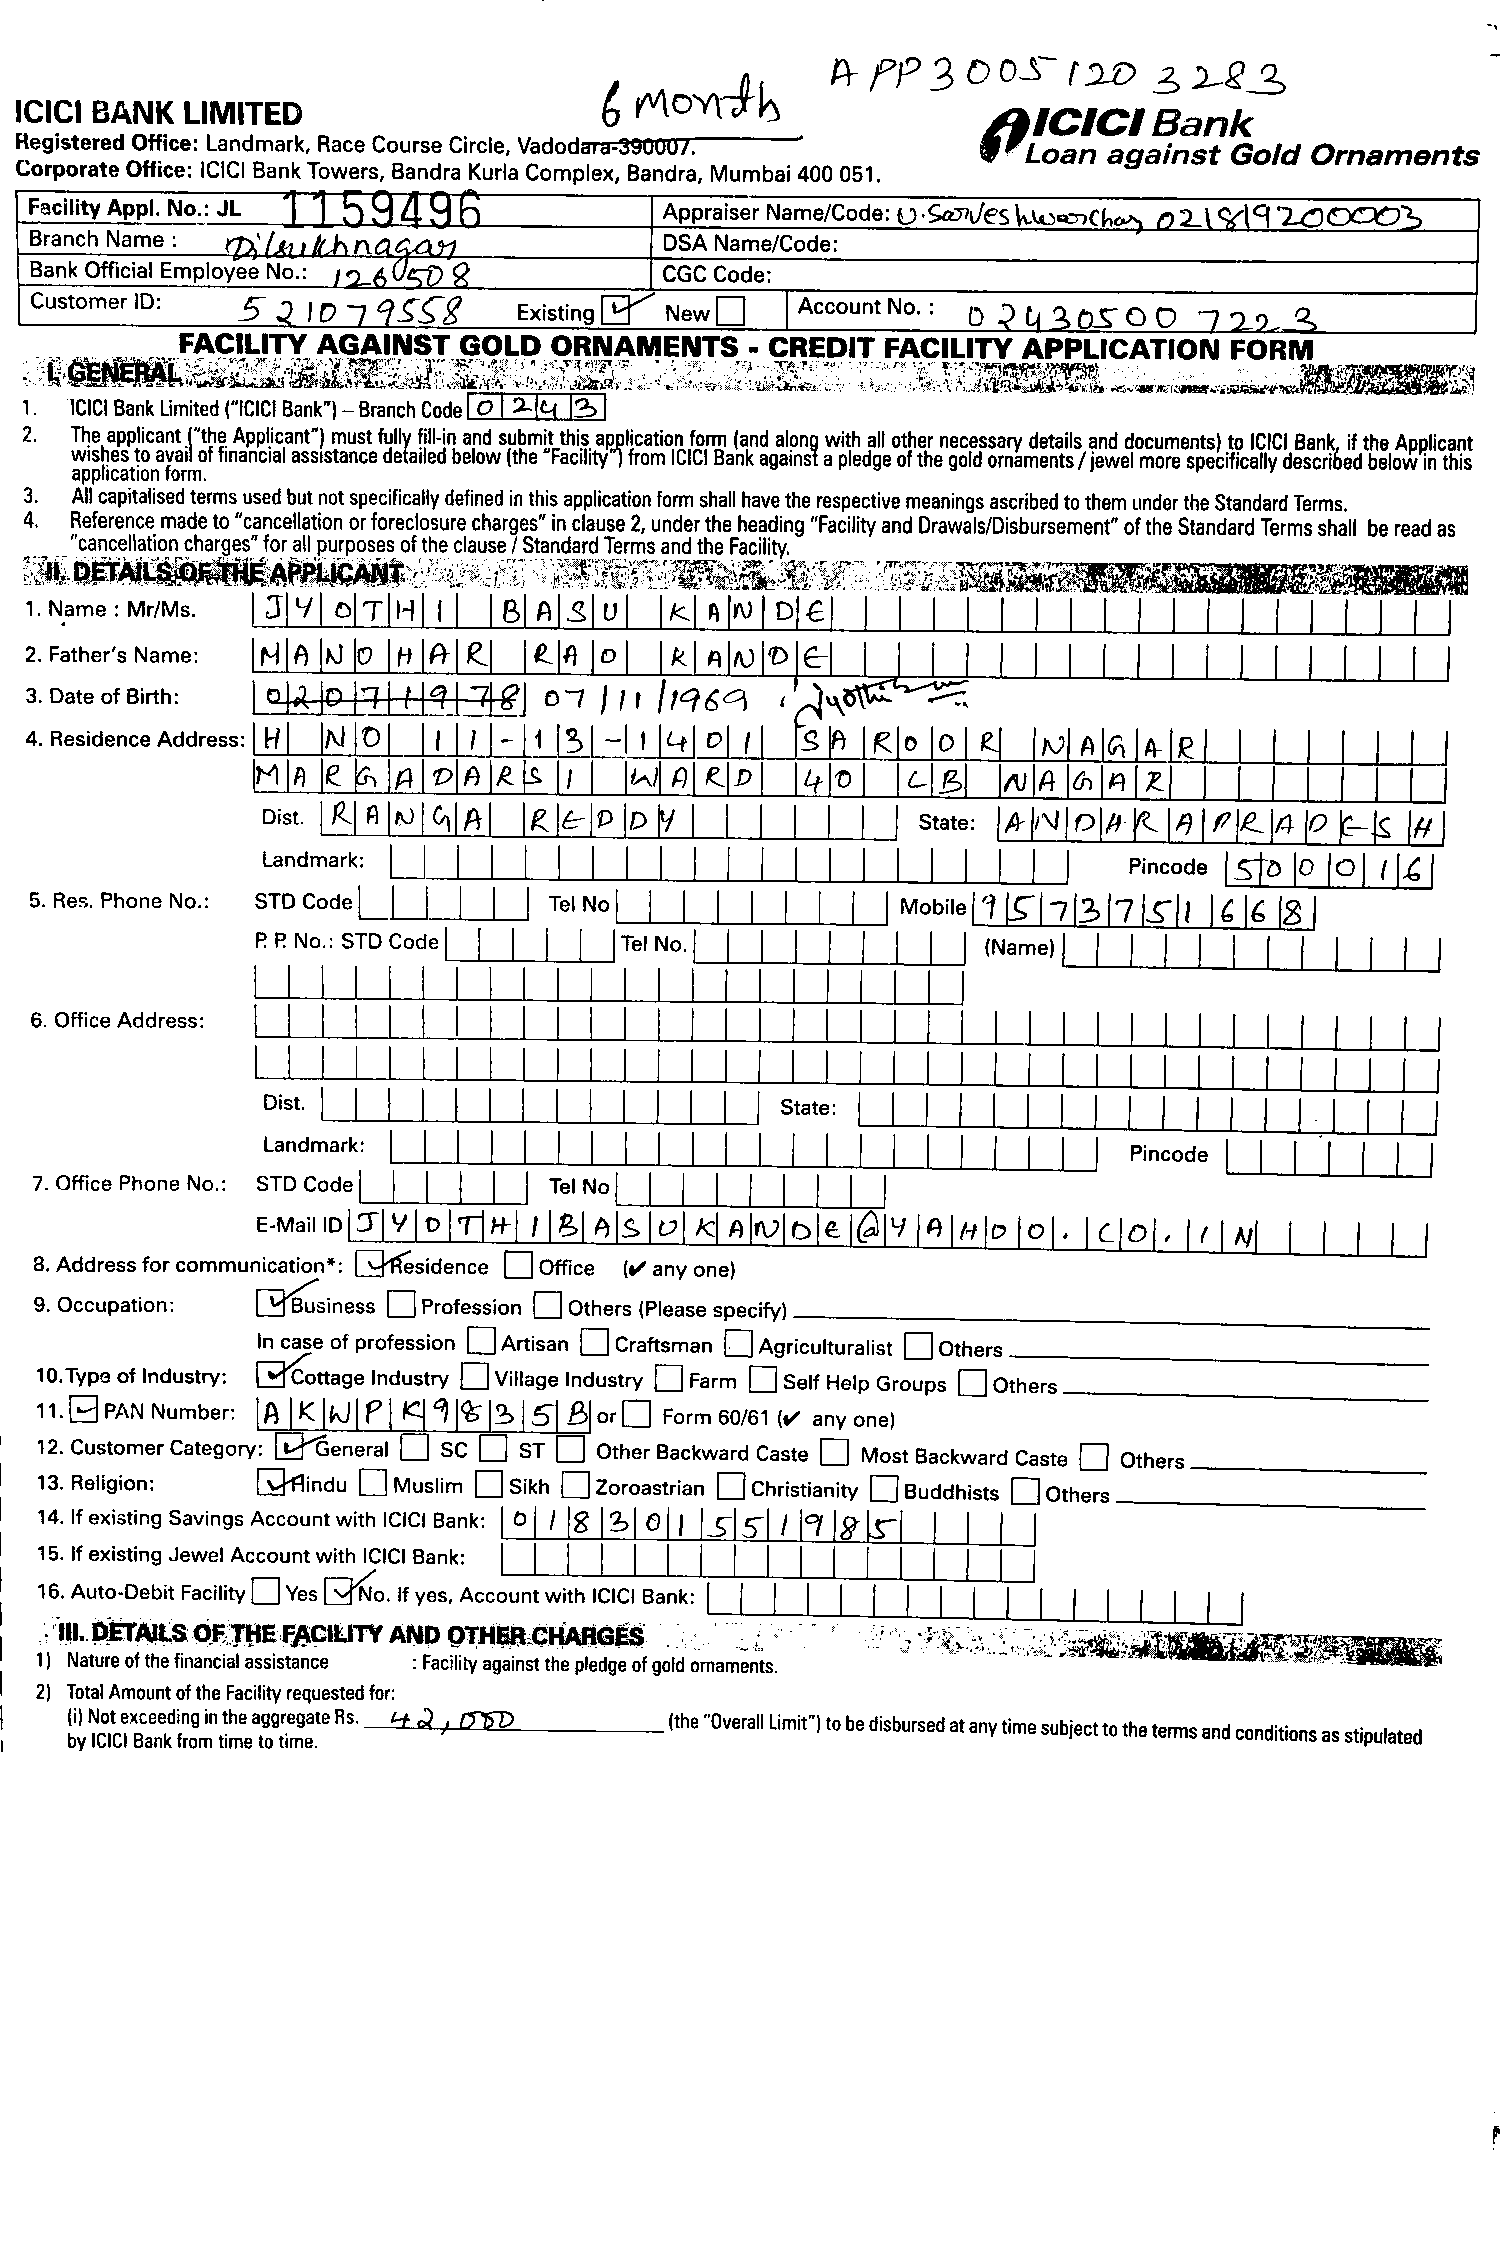 APP30051203283
6 month
ICICI BANK LIMITED
Registered Office: Landmark, Race Course Circle, Vadodara-390007.
Corporate Office: ICICI Bank Towers, Bandra Kurla Complex, Bandra, Mumbai 400 051.
ICICI Bank
Loan against Gold Ornaments
Facility Appl. No.: JL 1159496
Appraiser Name/Code: U. Sarveshwarchary 021819200003
Branch Name : Dilsukhnagar
DSA Name/Code:
Bank Official Employee No.: 126508
CGC Code:
Customer ID: 521079558 Existing ✓ New Account No. : 024305007223
FACILITY AGAINST GOLD ORNAMENTS - CREDIT FACILITY APPLICATION FORM
I. GENERAL
1. ICICI Bank Limited ("ICICI Bank") – Branch Code 0243
2. The applicant ("the Applicant") must fully fill-in and submit this application form (and along with all other necessary details and documents) to ICICI Bank, if the Applicant
wishes to avail of financial assistance detailed below (the "Facility") from ICICI Bank against a pledge of the gold ornaments / jewel more specifically described below in this
application form.
3. All capitalised terms used but not specifically defined in this application form shall have the respective meanings ascribed to them under the Standard Terms.
4. Reference made to "cancellation or foreclosure charges" in clause 2, under the heading "Facility and Drawals/Disbursement" of the Standard Terms shall be read as
"cancellation charges" for all purposes of the clause / Standard Terms and the Facility.
II. DETAILS OF THE APPLICANT
1. Name : Mr/Ms. JYOTHI BASU KANDE
2. Father's Name: MANOHAR RAO KANDE
3. Date of Birth: 02071978 07/11/1969 Jyothi
4. Residence Address: H NO 11-13-1401 SAROOR NAGAR
MARGADARSI WARD 40 LB NAGAR
Dist. RANGA REDDY State: ANDHRAPRADESH
Landmark: Pincode 500016
5. Res. Phone No.: STD Code Tel No Mobile 9573751668
P. P. No.: STD Code Tel No. (Name)
6. Office Address:
Dist. State:
Landmark: Pincode
7. Office Phone No.: STD Code Tel No
E-Mail ID JYOTHIBASUKANDE@YAHOO.CO.IN
8. Address for communication*: ✓ Residence Office (✔ any one)
9. Occupation: ✓ Business Profession Others (Please specify)
In case of profession Artisan Craftsman Agriculturalist Others
10. Type of Industry: ✓ Cottage Industry Village Industry Farm Self Help Groups Others
11. ✓ PAN Number: AKWPK9835B or Form 60/61 (✔ any one)
12. Customer Category: ✓ General SC ST Other Backward Caste Most Backward Caste Others
13. Religion: ✓ Hindu Muslim Sikh Zoroastrian Christianity Buddhists Others
14. If existing Savings Account with ICICI Bank: 018301551985
15. If existing Jewel Account with ICICI Bank:
16. Auto-Debit Facility Yes ✓ No. If yes, Account with ICICI Bank:
III. DETAILS OF THE FACILITY AND OTHER CHARGES
1) Nature of the financial assistance : Facility against the pledge of gold ornaments.
2) Total Amount of the Facility requested for:
(i) Not exceeding in the aggregate Rs. 42,000 (the "Overall Limit") to be disbursed at any time subject to the terms and conditions as stipulated
by ICICI Bank from time to time.